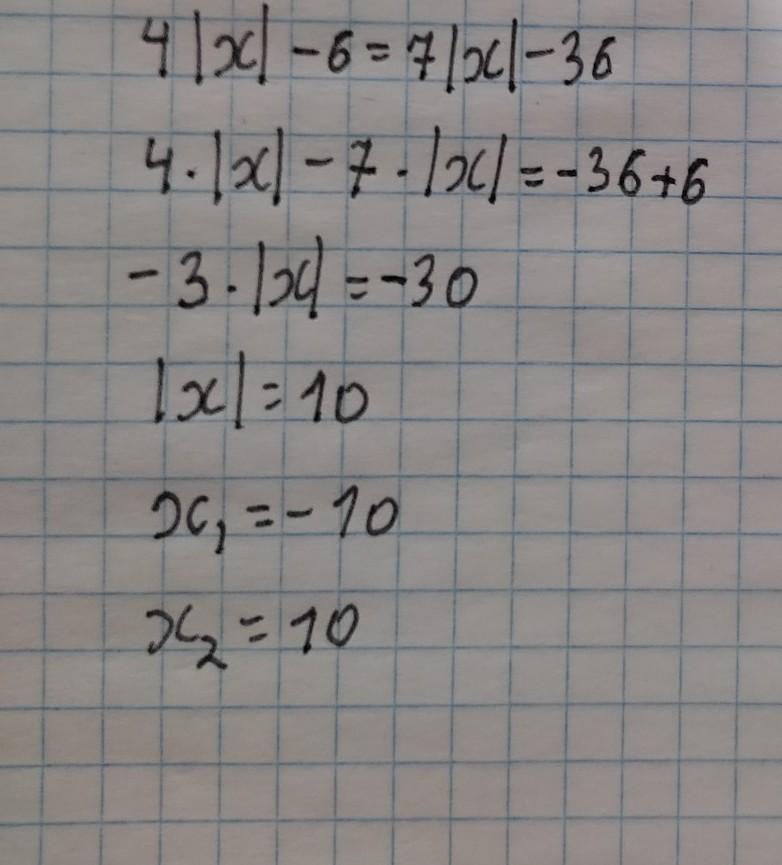 4|x| - 6 = 7|x| - 36
4 · |x| - 7 · |x| = -36 + 6
-3 · |x| = -30
|x| = 10
x₁ = -10
x₂ = 10